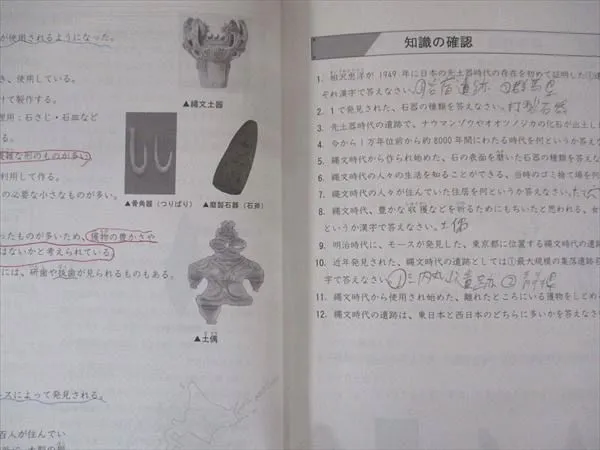 が使用されるようになった。
き、使用している。
けて製作する。
理用：石さじ・石皿など
雑な形のものが多い
利用して作る。
の必要な小さなものが多い。
ったものが多いため、獲物の豊かさや
はないかと考えられている
には、研歯や抜歯が見られるものもある。
スによって発見される。
百人が住んでい
▲縄文土器
▲骨角器（つりばり）
▲磨製石器（石斧）
▲土偶
知識の確認
1. 相沢忠洋が 1949 年に日本の先土器時代の存在を初めて証明した①遺
それ漢字で答えなさい。①岩宿遺跡 ②群馬県
2. 1で発見された、石器の種類を答えなさい。打製石器
3. 先土器時代の遺跡で、ナウマンゾウやオオツノジカの化石が出土し
4. 今から1万年位前から約8000年間にわたる時代を何というか答えな
5. 縄文時代から作られ始めた、石の表面を磨いた石器の種類を答えな
6. 縄文時代の人々の生活を知ることができる、当時のゴミ捨て場を何
7. 縄文時代の人々が住んでいた住居を何というか答えなさい。
8. 縄文時代、豊かな収穫などを祈るためにもちいたと思われる、女
というか漢字で答えなさい。土偶
9. 明治時代に、モースが発見した、東京都に位置する縄文時代の遺跡
10. 近年発見された、縄文時代の遺跡としては①最大規模の集落遺跡名
字で答えなさい。①三内丸山遺跡 ②青森県
11. 縄文時代から使用され始めた、離れたところにいる獲物をしとめ
12. 縄文時代の遺跡は、東日本と西日本のどちらに多いかを答えなさい